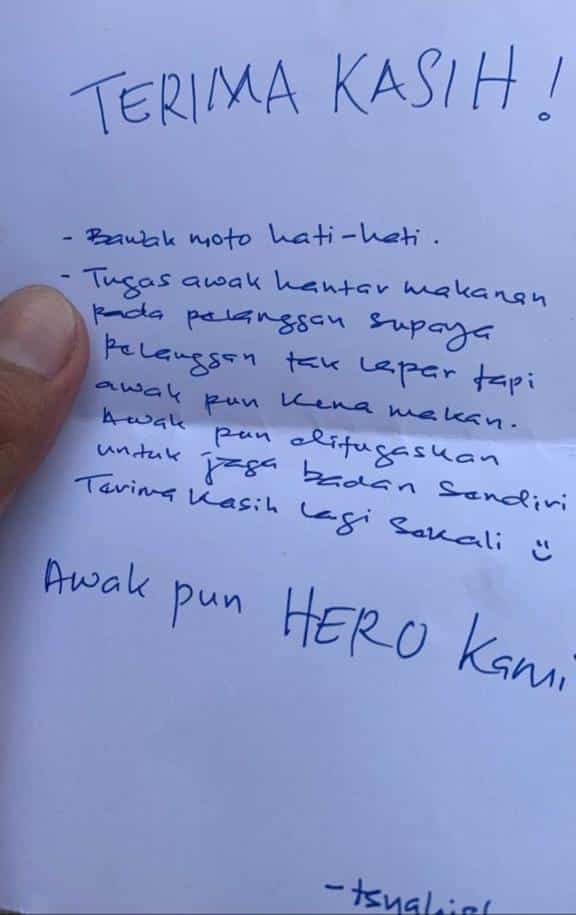 TERIMA KASIH!
- Bawak moto hati-hati.
- Tugas awak hantar makanan
pada pelanggan supaya
pelanggan tak lapar tapi
awak pun kena makan.
Awak pun ditugaskan
untuk jaga badan sendiri
Terima Kasih lagi Sekali
Awak pun HERO Kami